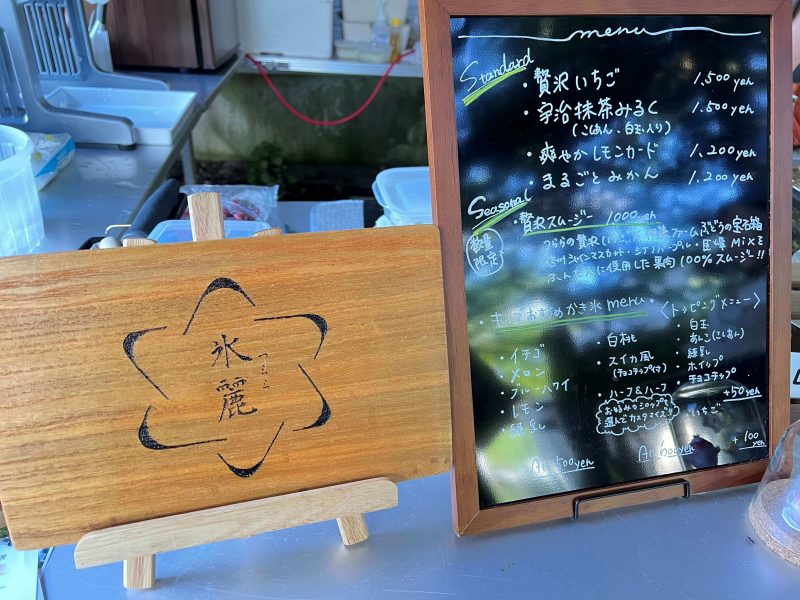 氷麗
つらら
menu
Standard
・贅沢いちご 1,500yen
・宇治抹茶みるく 1,500yen
(こしあん・白玉入り)
・爽やかレモンカード 1,200yen
・まるごとみかん 1,200yen
Seasonal
数量限定
・贅沢スムージー 1000yen
つららの贅沢 ファームぶどうの宝石箱
シャインマスカット・ パープル・巨峰MiXを
に使用した果肉100%スムージー!!
かき氷menu・
・イチゴ
・メロン
・ブルーハワイ
・レモン
・練乳
All 500yen
・白桃
・スイカ風
(チョコチップ付)
・ハーフ&ハーフ
お好みのシロップを
選んでカスタマイズ!!
All 600yen
〈トッピングメニュー〉
・白玉
・あんこ(こしあん)
・練乳
・ホイップ
・チョコチップ
+50yen
・いちご
+100yen